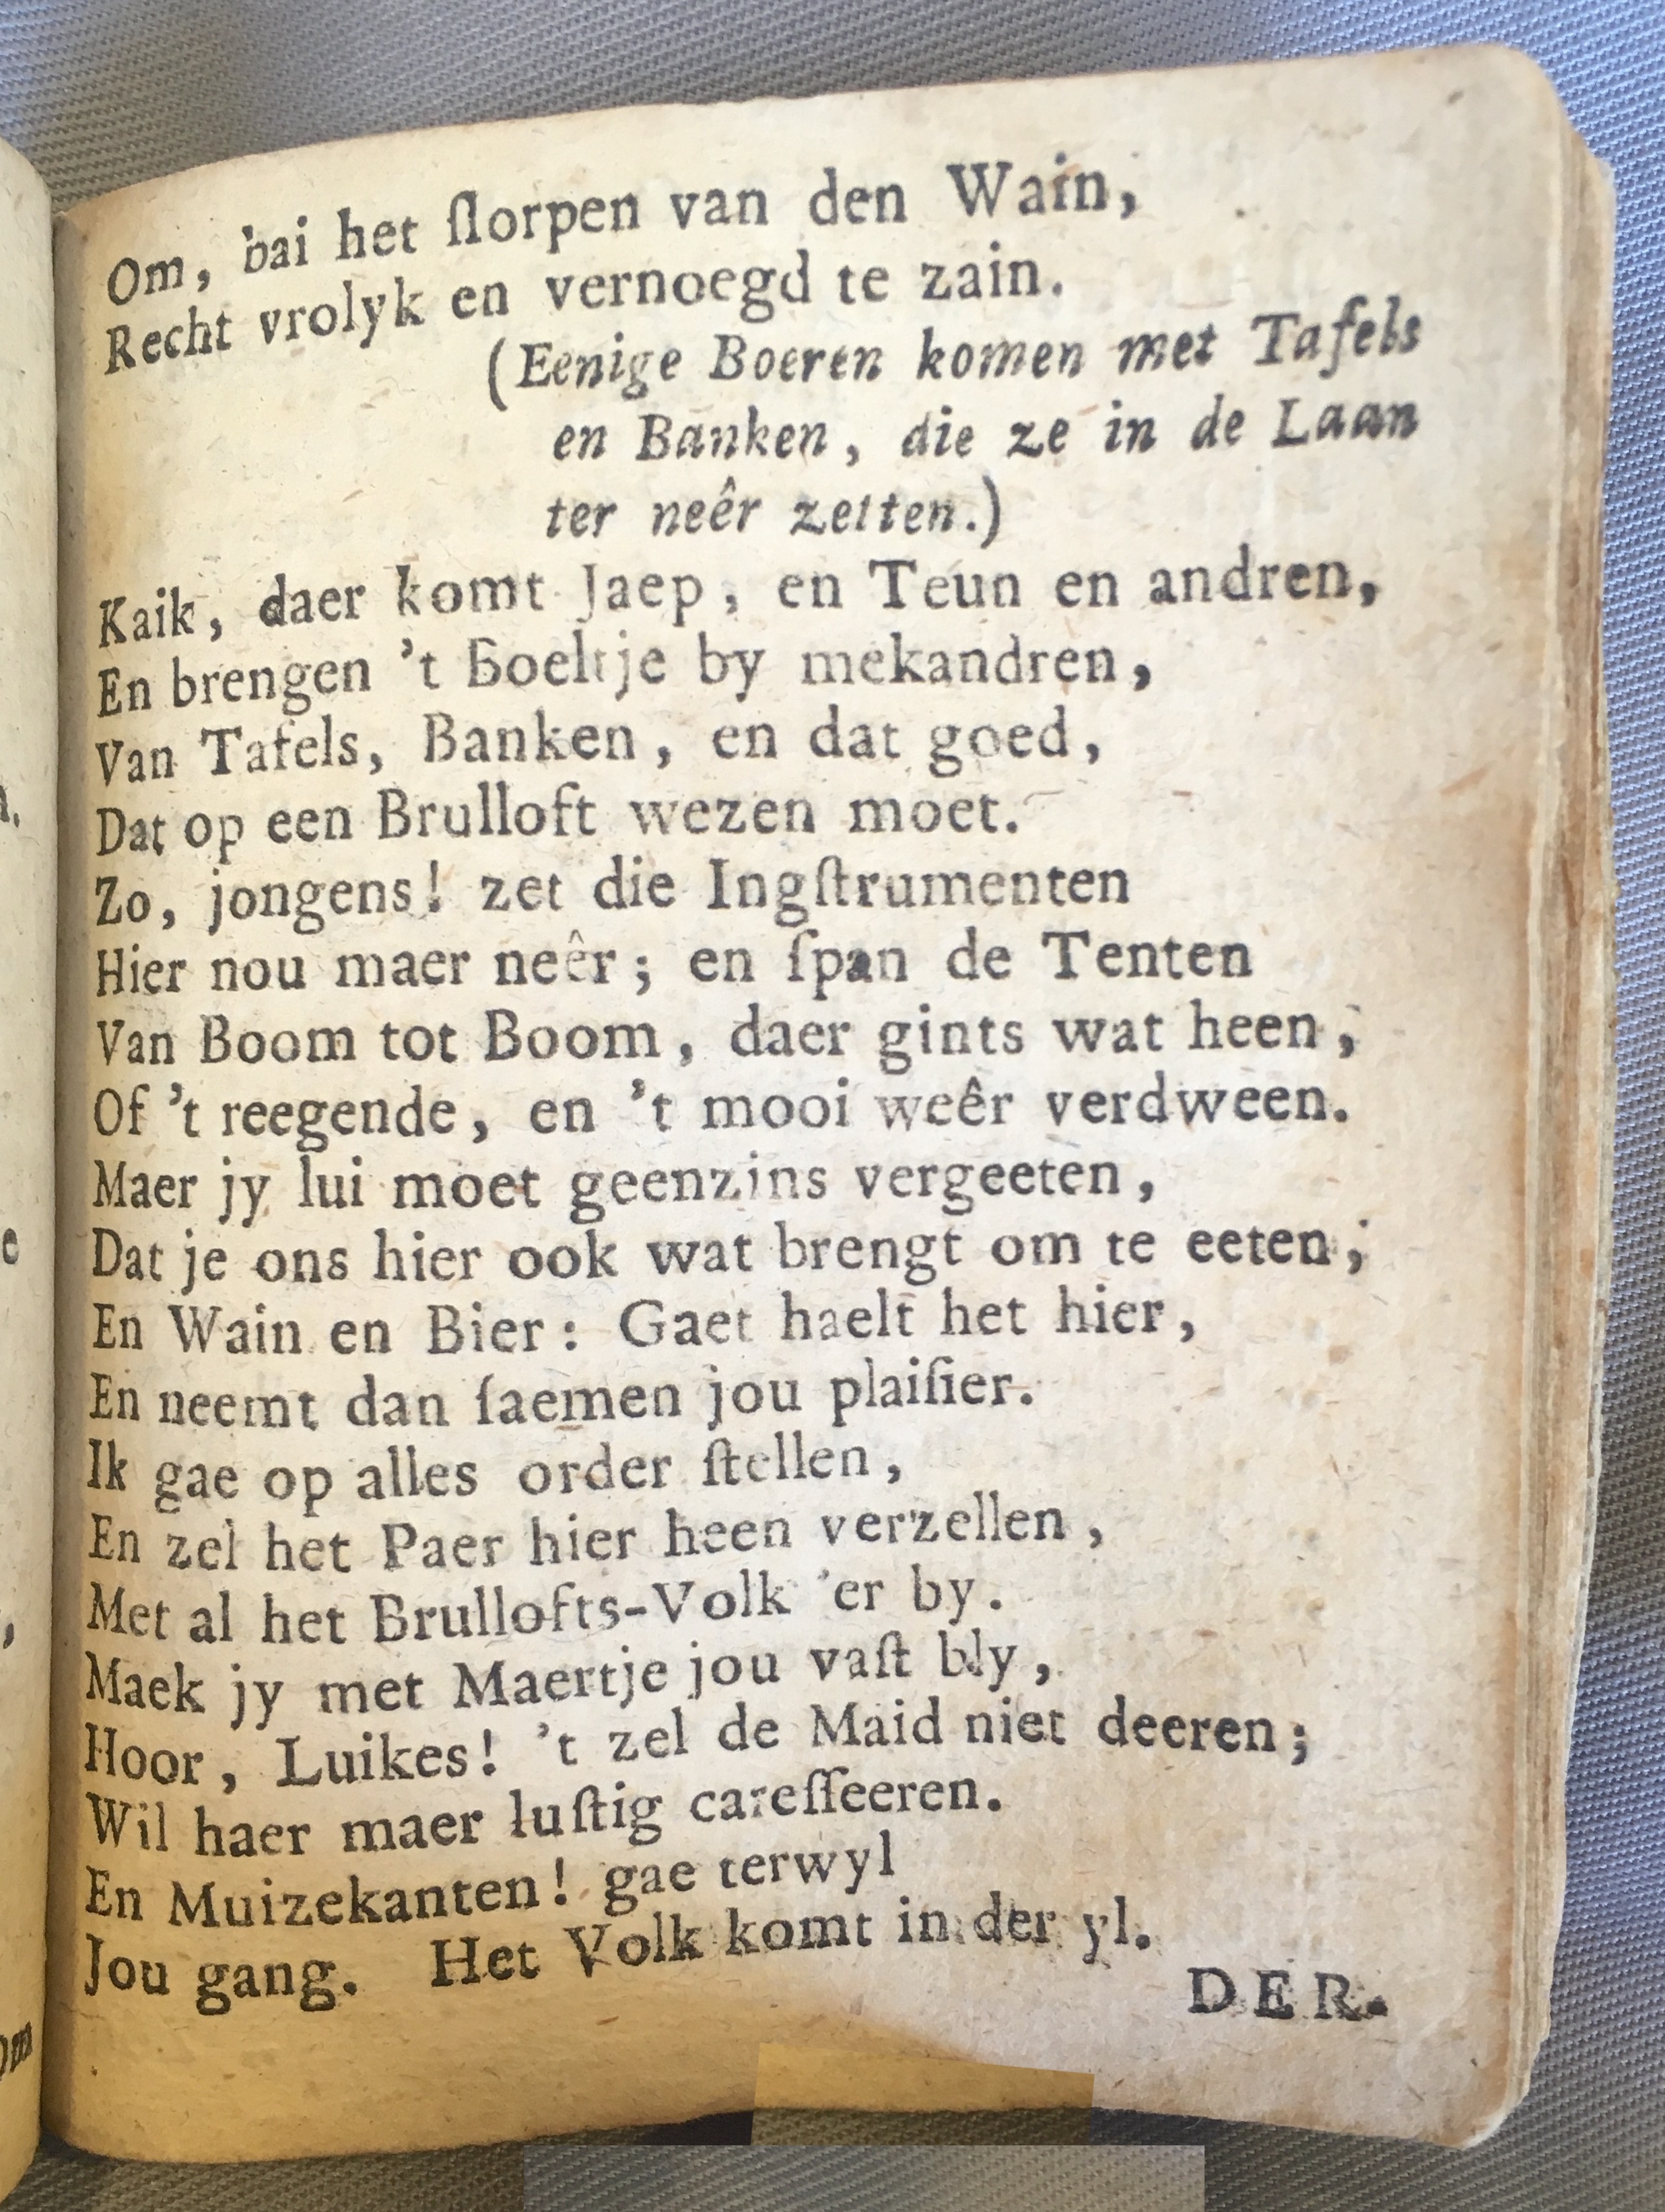 Om, bai het ſlorpen van den Wain,
Recht vrolyk en vernoegd te zain.
(Eenige Boeren komen met Tafels
en Banken, die ze in de Laan
ter neêr zetten.)
Kaik, daer komt Jaep, en Teun en andren,
En brengen 't Boeltje by mekandren,
Van Tafels, Banken, en dat goed,
Dat op een Brulloft wezen moet.
Zo, jongens! zet die Ingſtrumenten
Hier nou maer neêr; en ſpan de Tenten
Van Boom tot Boom, daer gints wat heen,
Of 't reegende, en 't mooi weêr verdween.
Maer jy lui moet geenzins vergeeten,
Dat je ons hier ook wat brengt om te eeten;
En Wain en Bier: Gaet haelt het hier,
En neemt dan ſaemen jou plaiſier.
Ik gae op alles order ſtellen,
En zel het Paer hier heen verzellen,
Met al het Brullofts-Volk 'er by.
Maek jy met Maertje jou vaſt bly,
Hoor, Luikes! 't zel de Maid niet deeren;
Wil haer maer luſtig careſſeeren.
En Muizekanten! gae terwyl
Jou gang. Het Volk komt in der yl.
DER.